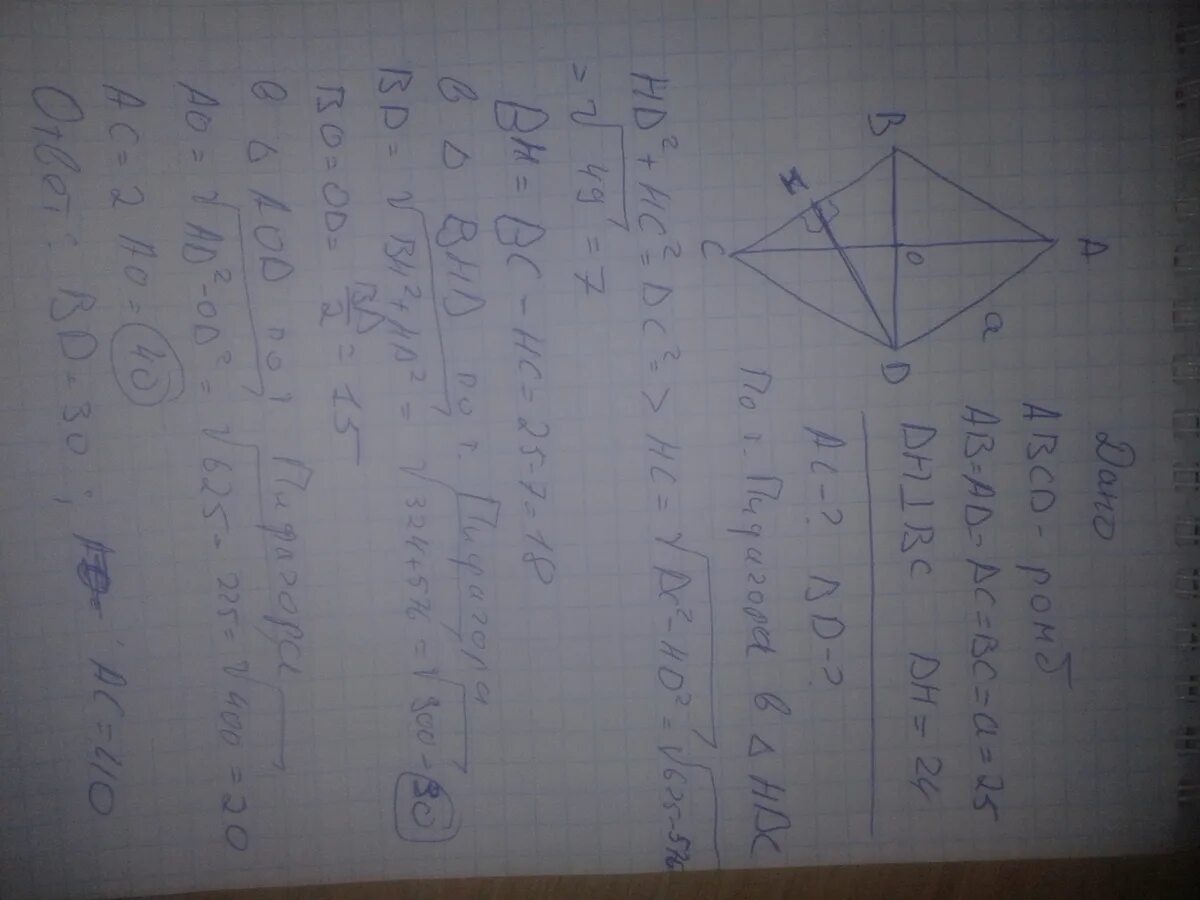 Дано
ABCD - ромб
AB=AD=DC=BC=a=25
DH⊥BC DH=24
AC-? BD-?
A
a
B
O
D
H
C
По т. Пифагора в △ HDC
HD²+HC²=DC² => HC=√DC²-HD²=√625-576
=√49=7
BH=BC-HC=25-7=18
в △ BHD по т. Пифагора
BD=√BH²+HD²=√324+576=√900=30
BO=OD=BD/2=15
в △ AOD по т Пифагора
AO=√AD²-OD²=√625-225=√400=20
AC=2 AO=40
Ответ: BD=30; AC=40